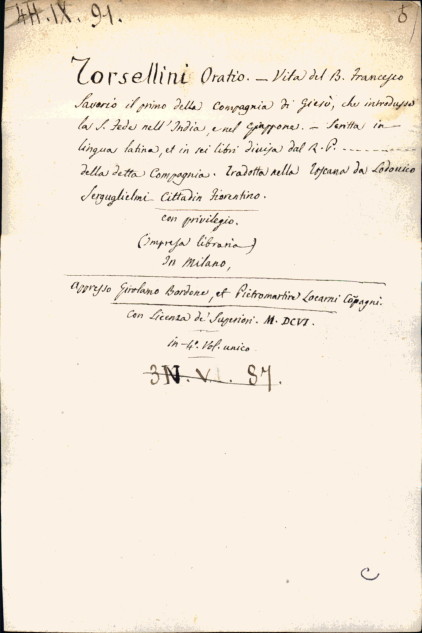 4H.IX.91.
Torsellini Oratio. — Vita del B. Francesco
Saverio il primo della Compagnia di Giesù, che introdusse
la S. Fede nell'India, e nel Giappone. — Scritta in
lingua latina, et in sei libri divisa dal R. P. — — — — —
della detta Compagnia. Tradotta nella Toscana da Lodovico
Serguglielmi Cittadin Fiorentino.
con privilegio.
(impresa libraria)
In Milano,
appresso Girolano Bordone, et Pietromartire Locarni Cõpagni.
con Licenza de' Superiori. M.DCVI.
in-4.º Vol. unico.
3N.VI.57.
C